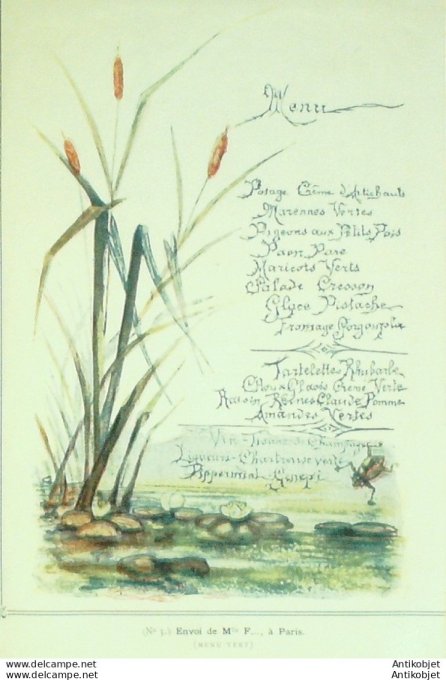 Menu
Potage Crême d'Artichauts
Marennes Vertes
Pigeons aux Petits Pois
Paon Paré
Haricots Verts
Salade Cresson
Glace Pistache
Fromage Gorgonzola
Tartelettes Rhubarbe
Choux Glacés Crême Verte
Raisin Reines Claude Pomme
Amandes Vertes
Vin - Tisane de Champagne
Liqueurs - Chartreuse verte
Pippermint Genepi
(No 3.) Envoi de Mlle F..., à Paris.
(MENU VERT)
https://www.antikobjet.com
Antikobjet
https://www.antikobjet.com
Antikobjet